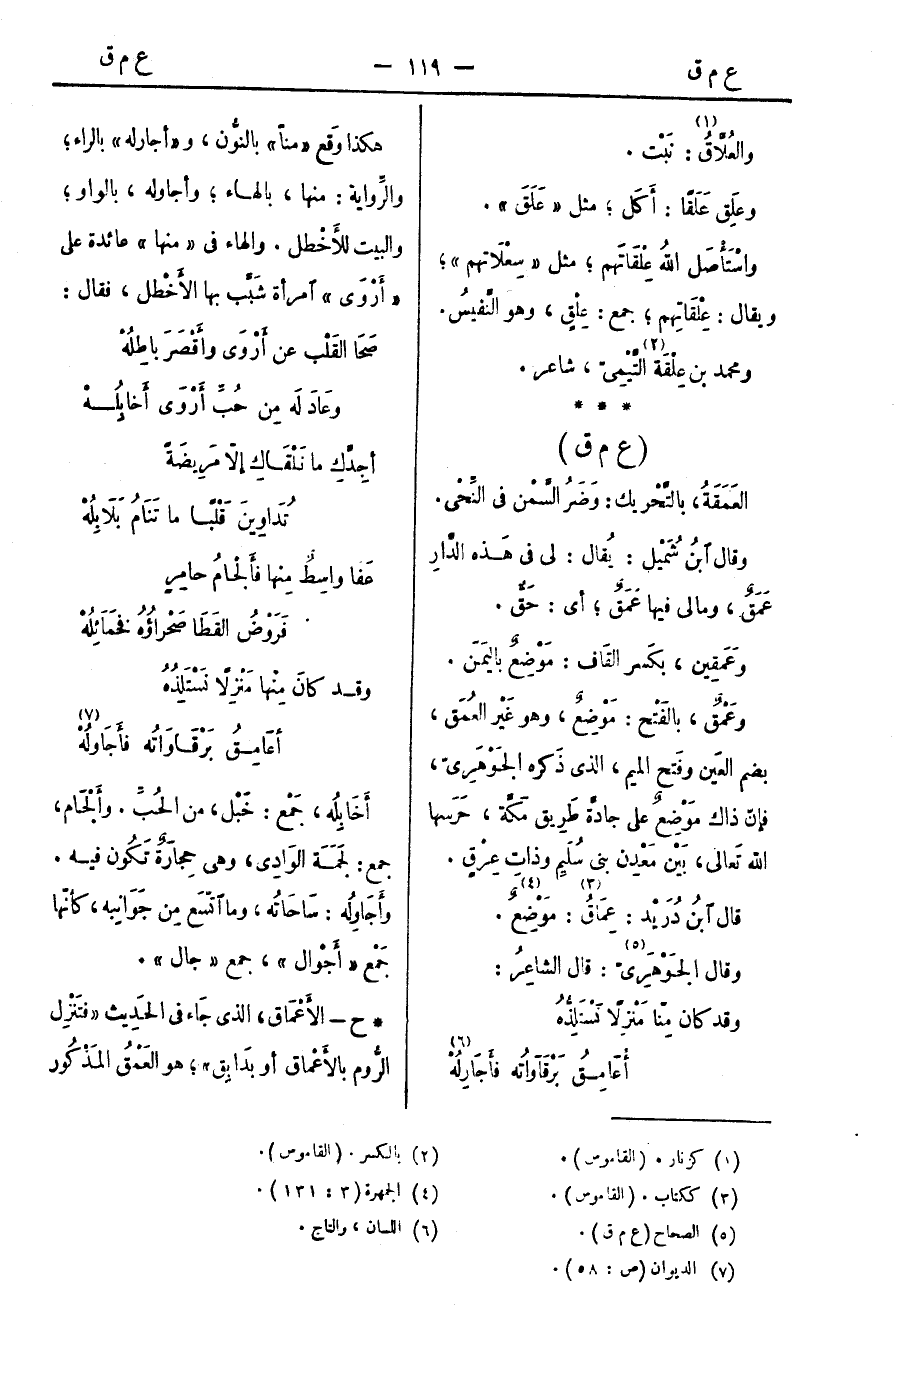 ع م ق — ١١٩ — ع م ق
والعُلَّاقُ (١) : نَبْت .
وعلِق عَلَقًا : أَكَل ؛ مثل « عَلَقَ » .
واسْتَأْصَل اللهُ عِلْقَاتَهم ؛ مثل « سِعْلَاتهم » ؛
ويقال : عِلْقَاتِهم ؛ جمع : عِلْقٍ ، وهو النَّفيسُ .
ومحمد بن عِلْقَة (٢) التَّيْمِىّ ، شاعر .
* * *
(ع م ق)
العَمَقَةُ ، بالتَّحْريك : وَضَرُ السَّمْن فى النِّحْى .
وقال ٱبنُ شُمَيْل : يُقال : لى فى هَـذه الدَّارِ
عَمَقٌ ، ومالى فيها عَمَقٌ ؛ أى : حَقّ .
وعَمَقِين ، بكَسر القَاف : مَوْضِعٌ باليَمَن .
وعَمْقٌ ، بالفَتْح : مَوْضِعٌ ، وهو غَيْر العُمَق ،
بضم العَين وفَتح الميم ، الذى ذَكره الجَوْهَرِىّ ،
فإنّ ذاك مَوْضِعٌ على جادَّة طَرِيق مَكَّة ، حَرَسها
الله تَعالى ، بَيْن مَعْدِن بنى سُلَيم وذاتِ عِرْقٍ .
قال ٱبنُ دُرَيْد : عِمَاقُ (٣) : مَوْضِعٌ (٤) .
وقال الجَوْهَرِىّ (٥) : قال الشاعِرُ :
وقد كان مِنّا مَنْزِلًا نَسْتَلِذُّه
أُعَامِـقُ بَرْقَاوَاتُه فَأَجَارِلُهْ (٦)
هكذا وَقع « منّا » بالنُّون ، و « أجارله » بالراء ؛
والرِّواية : منها ، بالهـاء ؛ وأجاوله ، بالواو ؛
والبيت للأَخْطل . والهاء فى « منها » عائدة على
« أَرْوَى » ٱمرأة شَبَّب بها الأَخْطل ، فقال :
صَحَا القَلْب عن أَرْوَى وأَقْصَرَ باطِلُهْ
وعَادَ لَه مِن حُبِّ أَرْوَى أَخَابِلُـهْ
أجِدَّكِ ما نَلْقَـاكِ إلّا مَرِيضَةً
تُدَاوِينَ قَلْبًـا ما تَنَامُ بَلَابِلُهْ
عَفَا واسِطٌ مِنها فأَلْجَامُ حامِرٍ
فَرَوْضُ القَطَا صَحْراؤُه فخمَائِلُهْ
وقـد كانَ مِنْها مَنْزِلًا نَسْتَلِذُّهُ
أعَامِـقُ بَرْقَـاوَاتُه فأَجَاوِلُهْ (٧)
أَخَابِلُه ، جَمْع : خَبْل ، من الحُبّ . وأَلْجَام ،
جمع : لَجَمَة الوَادِى ، وهى حِجارَةٌ تَكُون فيـه .
وأَجَاوِلُه : سَاحَاتُه ، وما ٱتّسَع مِن جَوَانِبِه ، كأنّها
جَمْع « أَجْوال » ، جمع « جال » .
* ح – الأَعْمَاق ، الذى جَاء فى الحَدِيث « فتَنْزِل
الرُّوم بالأَعْمَاق أو بَدَابِق » ؛ هو العَمْقُ المَذْكُور
(١) كزنار . (القاموس) .
(٢) بالكسر . (القاموس) .
(٣) ككتاب . (القاموس) .
(٤) الجمهرة (٣ : ١٣١) .
(٥) الصحاح (ع م ق) .
(٦) اللسان ، والتاج .
(٧) الديوان (ص : ٥٨) .